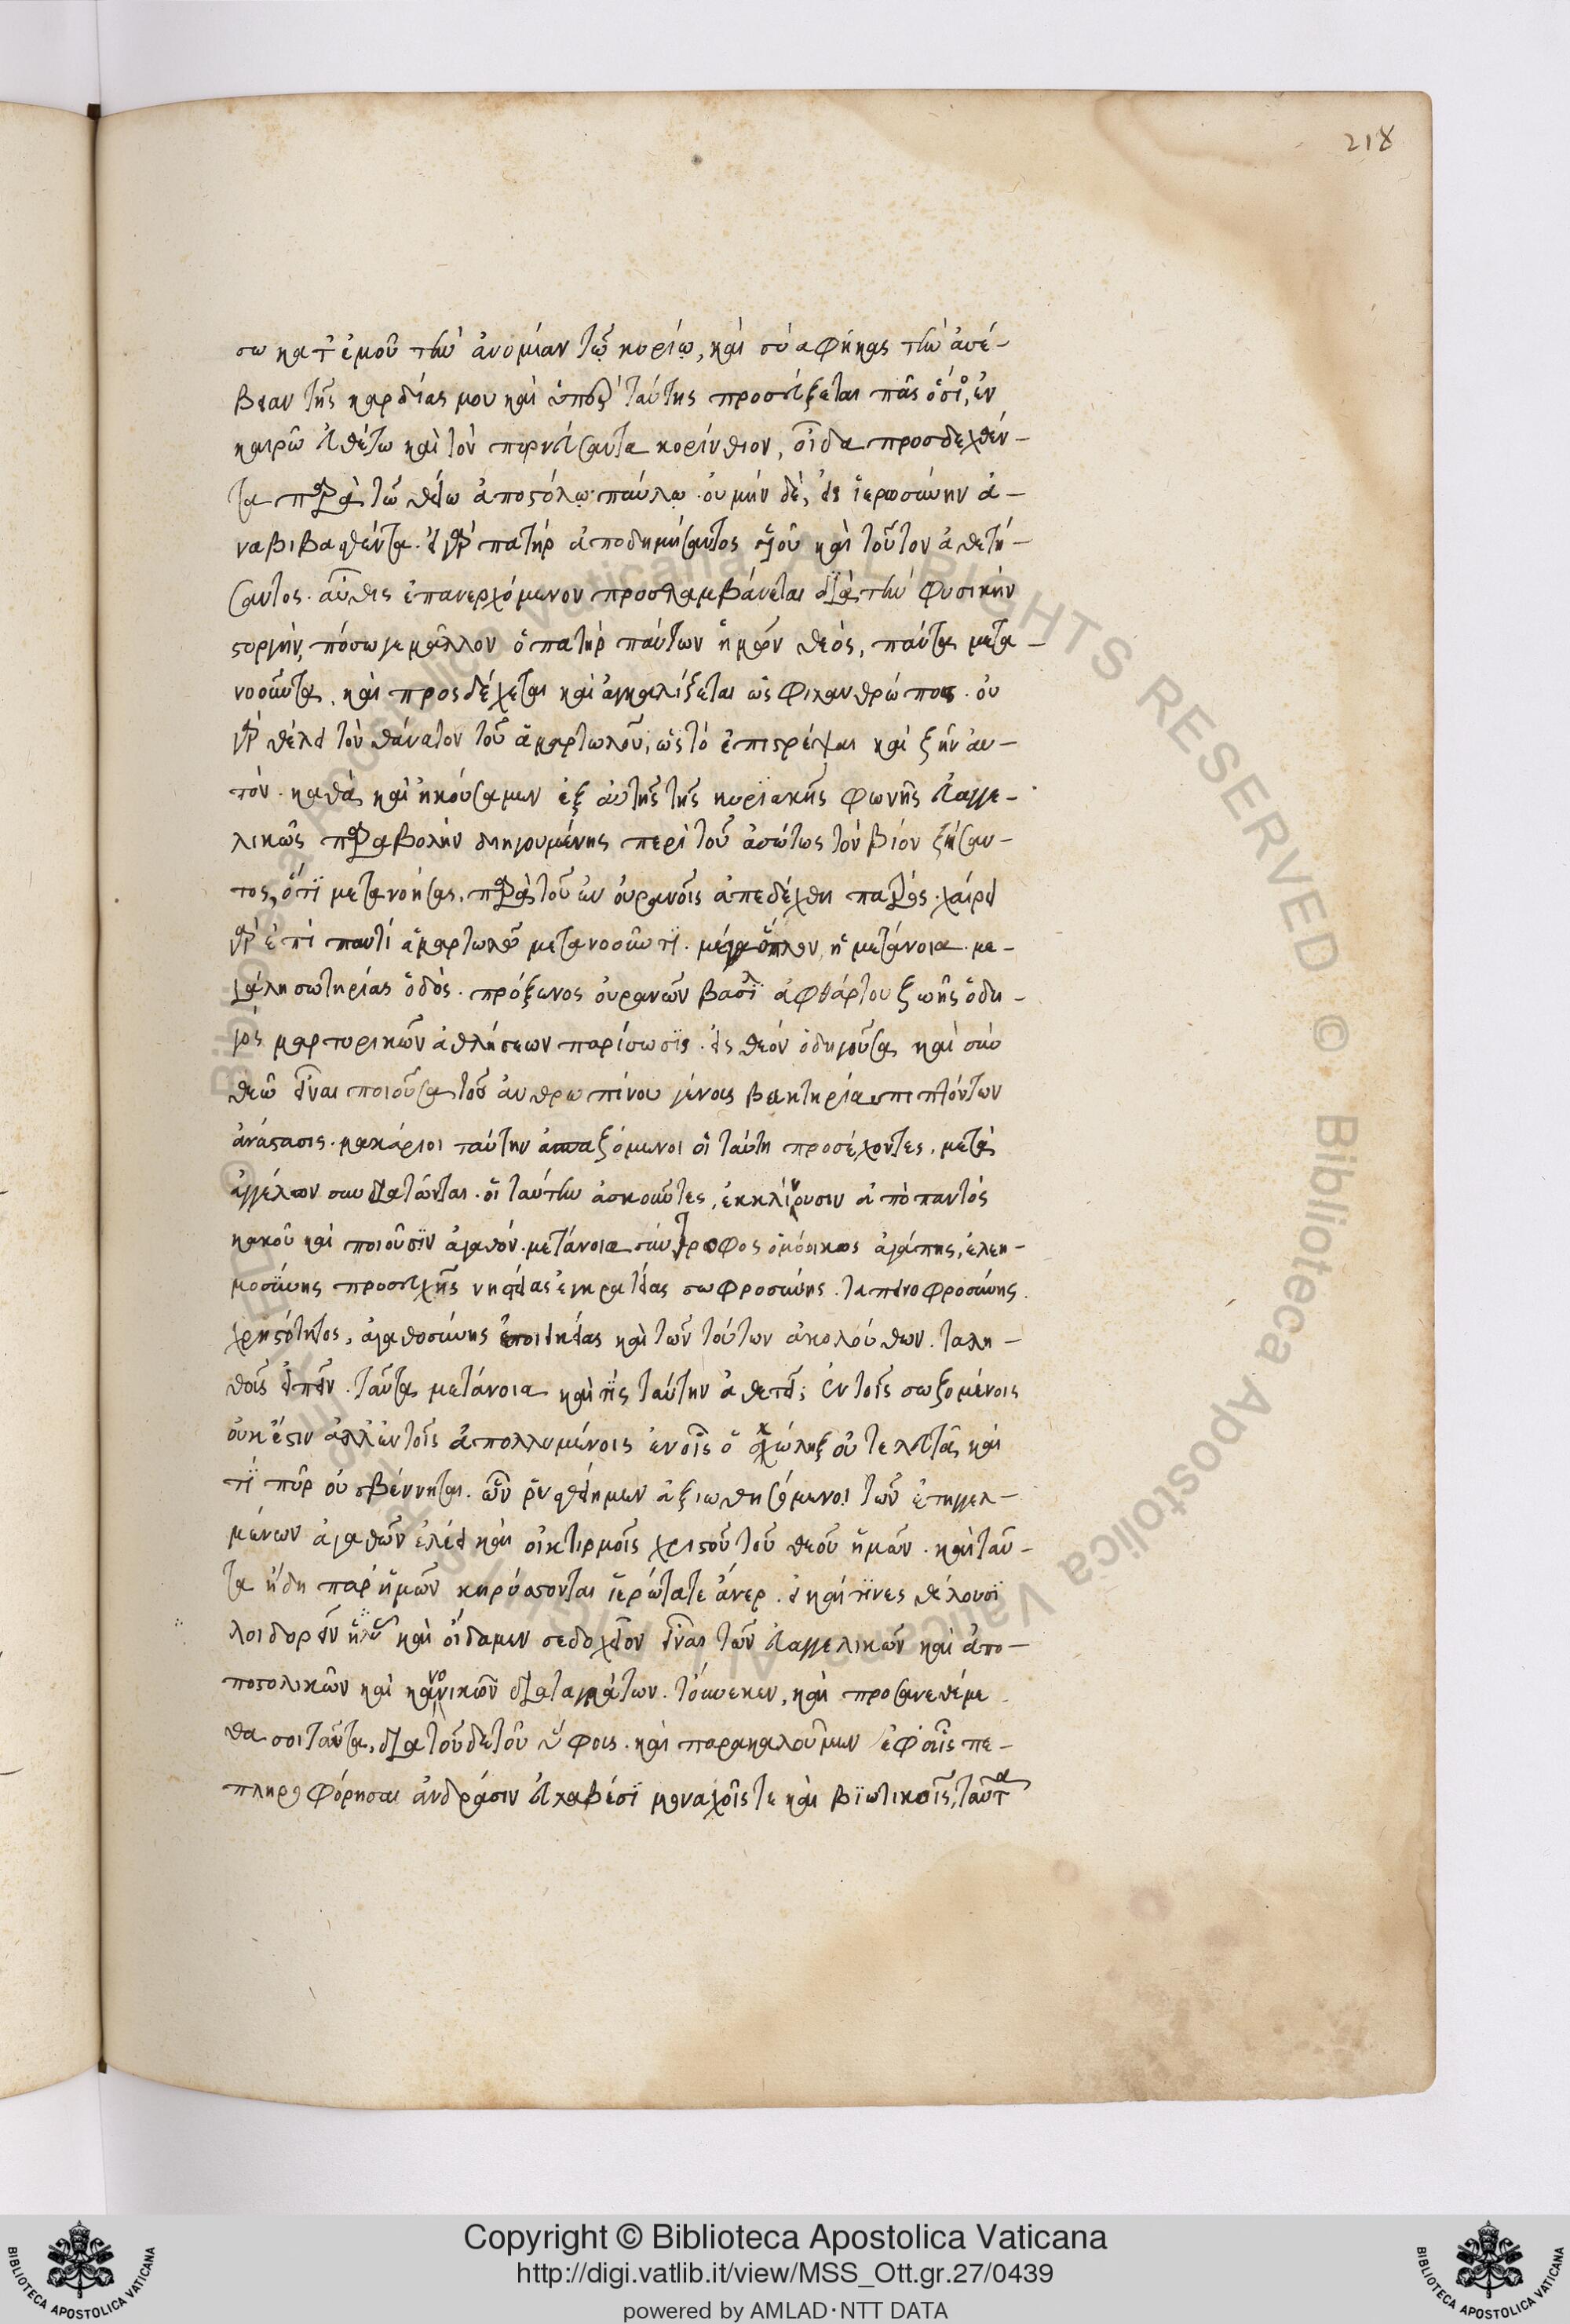 218
σω κατ ἐμοῦ τὴν ἀνομίαν τῶ κυρίω, καὶ σὺ αφῆκας τὴν ἀσέ-
βειαν τῆς καρδίας μου καὶ ὑπὲρ ταύτης προσεύξεται πᾶς ὅσιος, ἐν
καιρῶ εὐθέτω καὶ τὸν πορνεύσαντα κορίνθιον, οἶδα προσδεχθέν-
τα παρὰ τῶ θείω ἀποστόλω παύλω. οὐ μὴν δὲ, εἰς ἱερωσύνην ἀ-
ναβιβασθέντα. εἰ γὰρ πατὴρ ἀποδημήσαντος υἱοῦ καὶ τοῦτον ἀθετή-
σαντος. αὖθις ἐπανερχόμενον προσλαμβάνεται διὰ τὴν φυσικὴν
στοργὴν, πόσω γε μᾶλλον ὁ πατὴρ πάντων ἡμῶν θεὸς, πάντας μετα-
νοοῦντας, καὶ προσδέχεται καὶ ἀγκαλίζεται ὡς φιλανθρώπος. οὐ
γὰρ θέλει τὸν θάνατον τοῦ ἁμαρτωλοῦ, ὡς τὸ ἐπιστρέψαι καὶ ζῆν αυ-
τόν. καθὰ καὶ ἠκούσαμεν ἐξ αὐτῆς τῆς κυριακῆς φωνῆς εὐαγγε-
λικῶς παραβολὴν διηγουμένης περὶ τοῦ ἀσώτως τὸν βίον ζήσαν-
τος, ὅτι μετανοήσας, παρὰ τοῦ ἐν οὐρανοῖς ἀπεδέχθη πατρός. χαίρει
γὰρ ἐπὶ παντὶ ἁμαρτωλῶ μετανοοῦντι. μέγα ὅπλον, ἡ μετάνοια. με-
γάλη σωτηρίας ὁδὸς. πρόξενος οὐρανῶν βασι λ ἀφθάρτου ζωῆς ὁδη-
γὸς μαρτυρικῶν ἀθλήσεων παρίσωσις. εἰς θεὸν ὁδηγοῦσα καὶ σὺν
θεῶ εἶναι ποιοῦσα τοῦ ἀνθρωπίνου γένους βακτηρία πιπτόντων
ἀνάστασις. μακάριοι ταύτην ἀσπαζόμενοι οἱ ταύτη προσέχοντες, μετὰ
ἀγγέλων συνδιαιτῶνται. οἱ ταύτην ἀσκοῦντες, ἐκκλίνουσιν ἀπὸ παντὸς
κακοῦ καὶ ποιοῦσιν ἀγαθόν. μετάνοια σύντροφος ὁμόοικος ἀγάπης, ἐλεη-
μοσύνης προσευχῆς νηστείας ἐγκρατείας σωφροσύνης. ταπεινοφροσύνης.
χρηστότητος, ἀγαθοσύνης ἐπιεικείας καὶ τῶν τούτων ἀκολούθων. ταλη-
θοῖς εἰπεῖν. ταῦτα μετάνοια καὶ τίς ταύτην ἀθετεῖ; ἐν τοῖς σωζομένοις
οὐκ ἔστιν ἀλλ ἐν τοῖς ἀπολλυμένοις ἐν οἷς ὁ σκώληξ οὐ τελευτᾶ καὶ
τὶ πῦρ οὐ σβέννηται. ὧν ῥυσθείημεν ἀξιωθησόμενοι τῶν ἐπηγγελ-
μένων ἀγαθῶν ἐλέει καὶ οἰκτιρμοῖς χριστοῦ τοῦ θεοῦ ἡμῶν. καὶ ταῦ-
τα ἤδη παρ ἡμῶν κηρύσσονται ἱερώτατε ἄνερ. εἰ καί τινες θέλουσι
λοιδορεῖν ἡμᾶς καὶ οἴδαμεν σε δοχεῖον εἶναι τῶν εὐαγγελικῶν καὶ ἀπο-
ποστολικῶν καὶ κανονικῶν διαταγμάτων. τούνεκεν, καὶ προσανεθέμε
θα σοι ταῦτα, διὰ τοῦδε τοῦ ὕφους. καὶ παρακαλοῦμεν ἐφ οἷς πε-
πληροφόρησαι ἀνδράσιν εὐλαβέσι μοναχοῖς τε καὶ βιωτικοῖς, ταῦτα
Copyright © Biblioteca Apostolica Vaticana
http://digi.vatlib.it/view/MSS_Ott.gr.27/0439
powered by AMLAD·NTT DATA